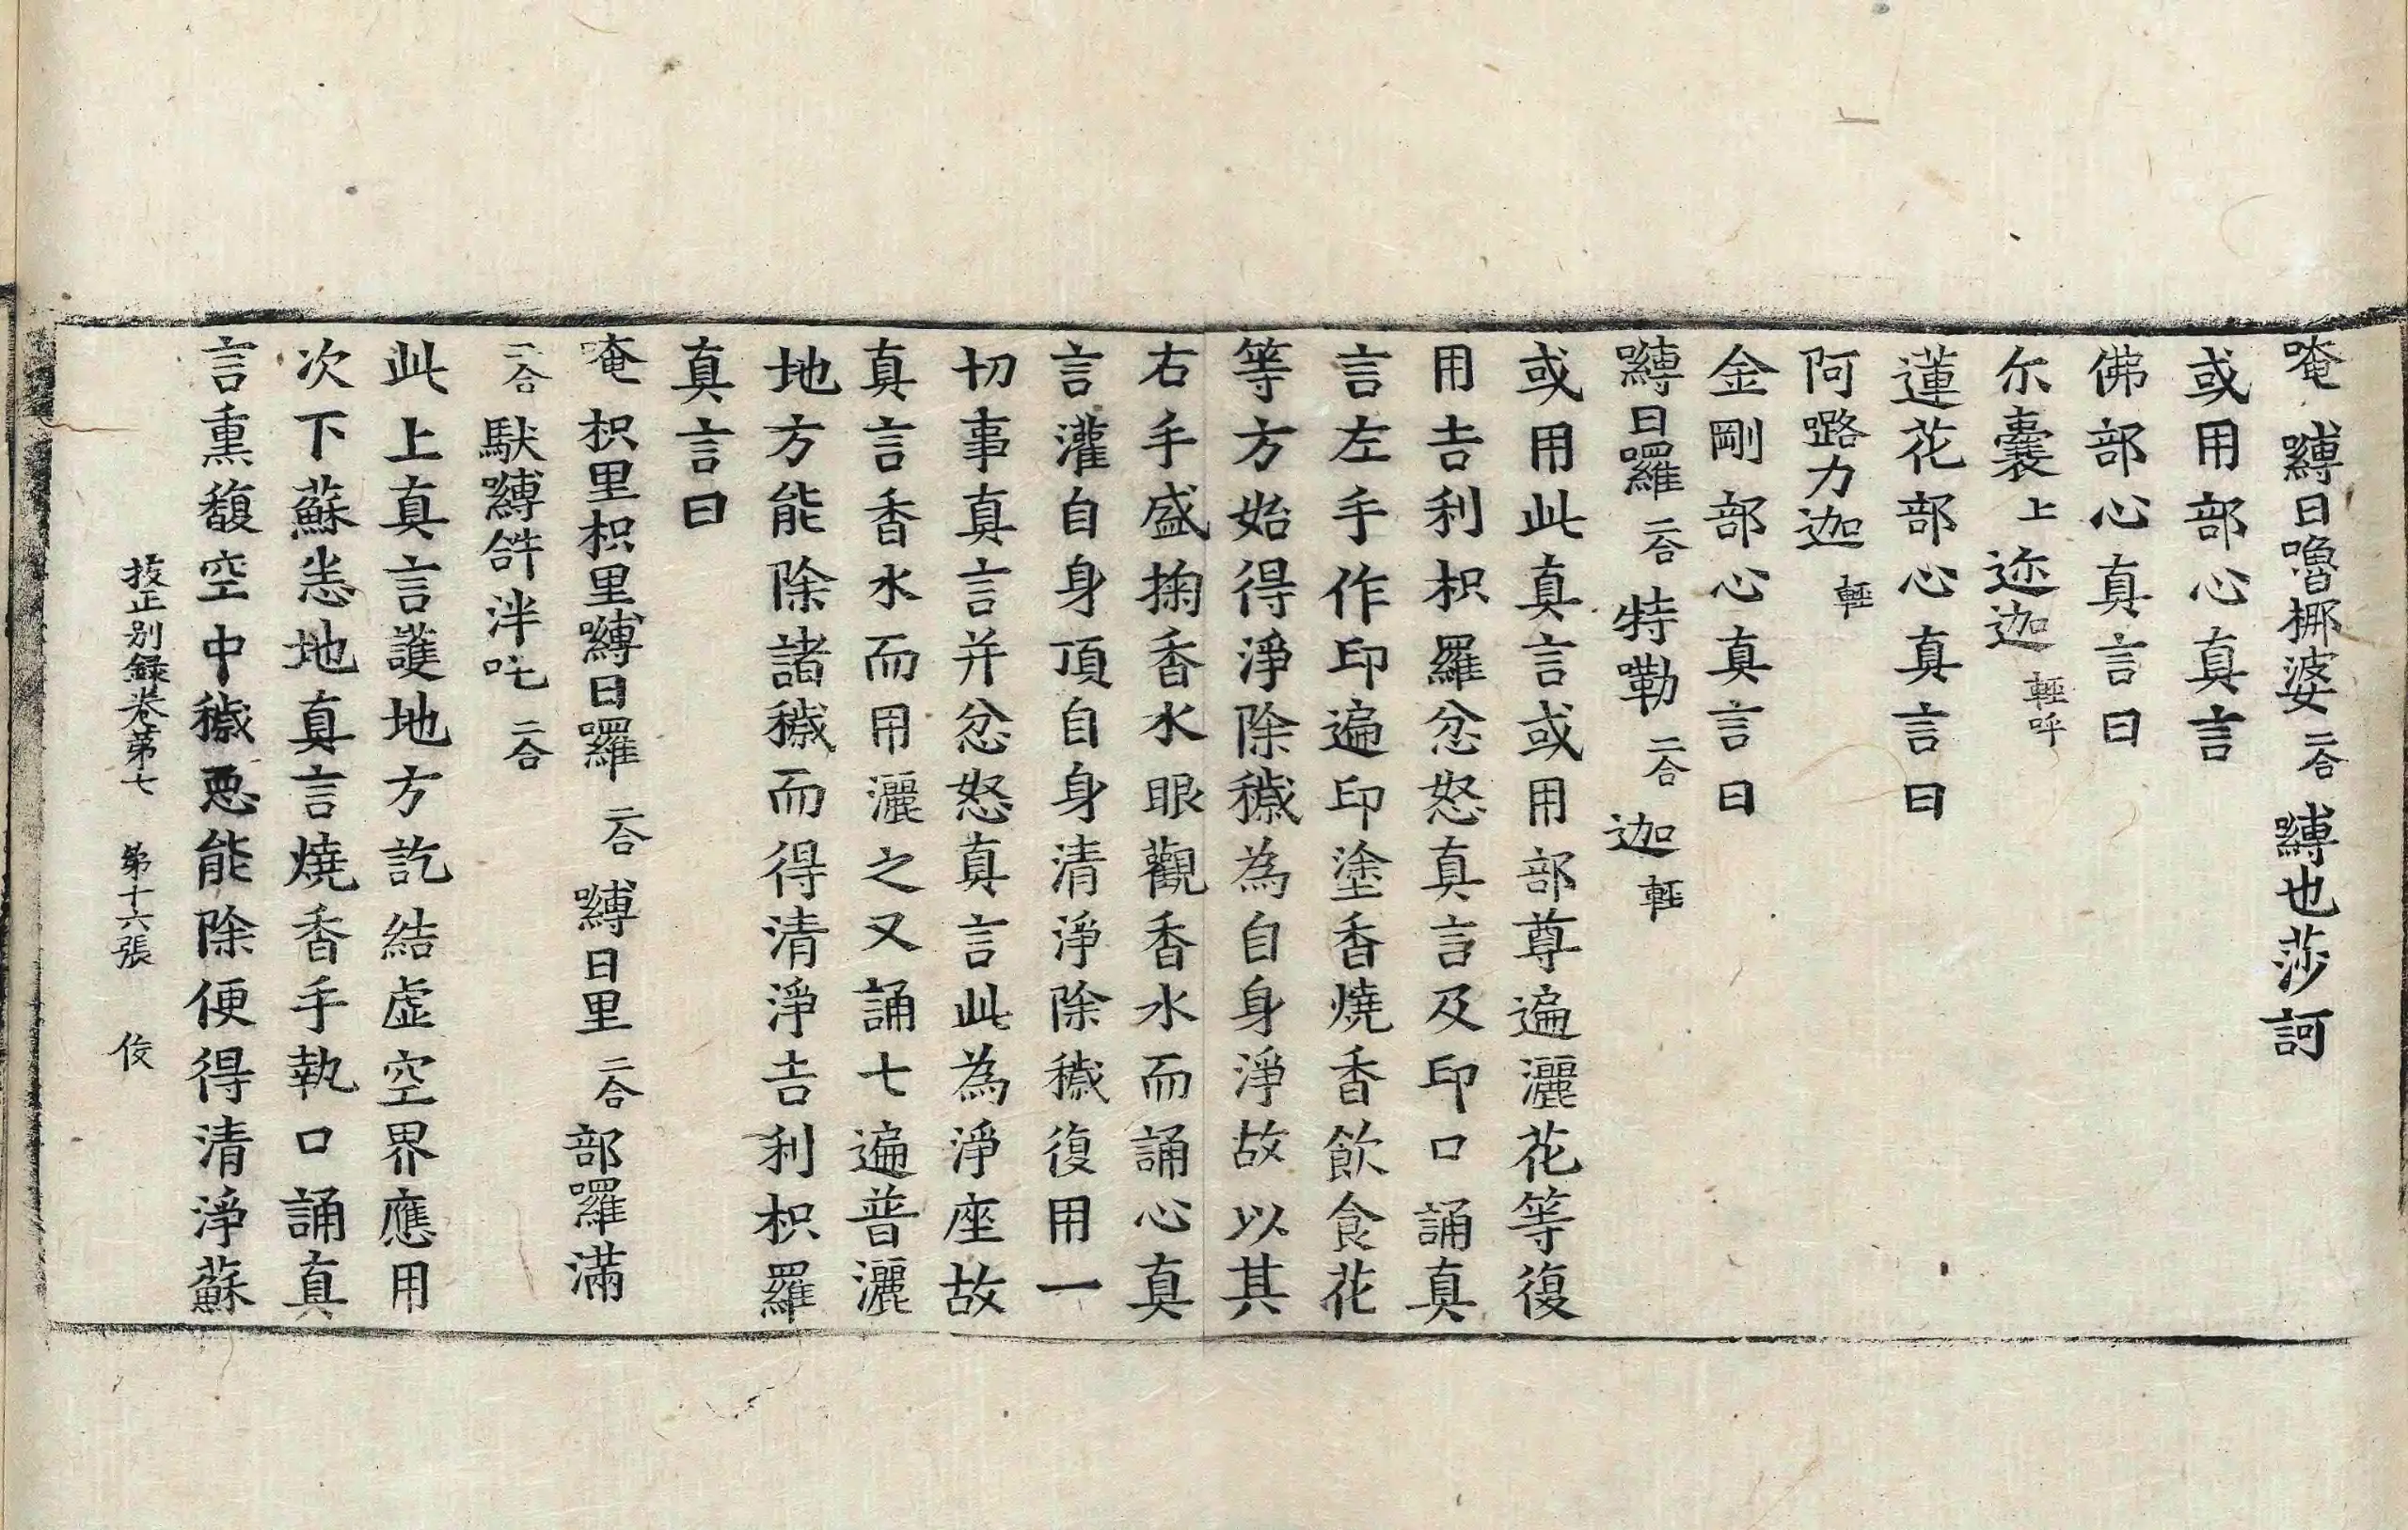 唵 嚩日嚕娜婆二合 嚩也莎訶
或用部心真言
佛部心真言曰
尔囊上 迩迦輕呼
蓮花部心真言曰
阿𡀔力迦輕
金剛部心真言曰
嚩日囉二合 特嘞二合 迦輕
或用此真言或用部尊遍灑花等復
用吉利枳羅忿怒真言及印口誦真
言左手作印遍印塗香燒香飲食花
等方始得淨除穢為自身淨故以其
右手盛掬香水眼觀香水而誦心真
言灌自身頂自身清淨除穢復用一
切事真言并忿怒真言此為淨座故
真言香水而用灑之又誦七遍普灑
地方能除諸穢而得清淨吉利枳羅
真言曰
唵 枳里枳里嚩日囉二合 嚩日里二合 部囉滿
二合 䭾嚩𤙖泮吒二合
此上真言護地方訖結虛空界應用
次下蘇悉地真言燒香手執口誦真
言熏馥空中穢惡能除便得清淨蘇
挍正別録卷第七 第十六張